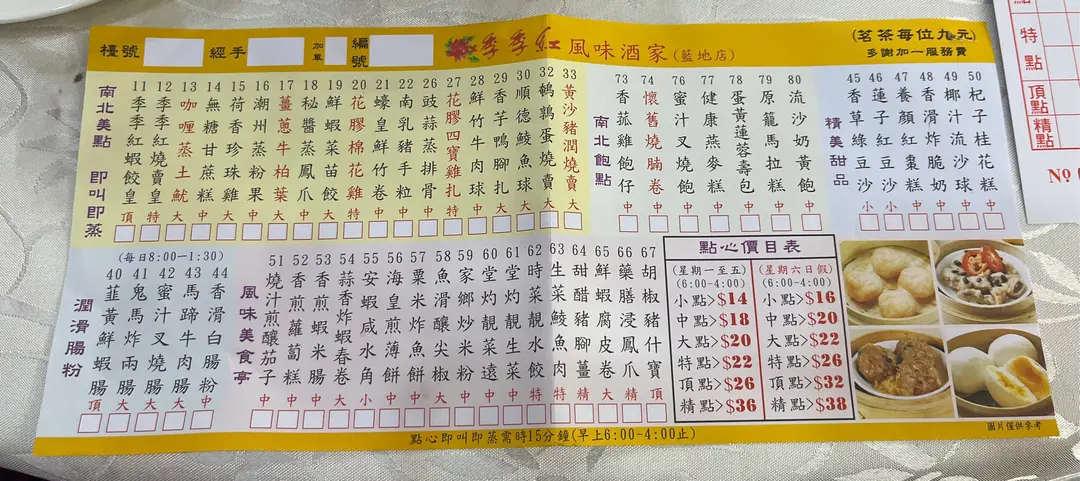 檯號
經手
加單
編號
季季紅風味酒家(藍地店)
(茗茶每位九元)
多謝加一服務費
南北美點 即叫即蒸
11 季季紅蝦餃皇 頂
12 季季蝦燒賣皇 特
13 咖喱蒸土魷 大
14 無糖甘蔗糕 中
15 荷香珍珠雞 大
16 潮州蒸粉果 中
17 薑蔥牛柏葉 大
18 秘醬蒸鳳爪 中
19 鮮蝦菜苗餃 大
20 花膠棉花雞 特
21 蠔皇鮮竹卷 中
22 南乳豬手粒 中
26 豉蒜蒸排骨 中
27 花膠四寶雞扎 特
28 鮮竹牛肉球 中
29 香芋鴨腳扎 大
30 順德鯪魚球 大
32 鵪鶉蛋燒賣 大
33 黃沙豬潤燒賣 大
南北飽點
73 香菇雞飽仔 中
74 懷舊燒腩卷 中
76 蜜汁叉燒飽 中
77 健康燕麥糕 中
78 蛋黃蓮蓉壽包 中
79 原籠馬拉糕 中
80 流沙奶黃飽 中
精美甜品
45 香草綠豆沙 小
46 蓮子紅豆沙 小
47 養顏紅棗糕 中
48 香滑炸脆奶 中
49 椰汁流沙球 中
50 杞子桂花糕 中
(每日8:00-1:30)
潤滑腸粉
40 韮黃鮮蝦腸 頂
41 鬼馬炸兩腸 大
42 蜜汁叉燒腸 大
43 馬蹄牛肉腸 大
44 香滑白腸粉 中
風味美食亭
51 燒汁煎釀茄子 中
52 香煎蘿蔔糕 中
53 香煎蝦米腸 中
54 蒜香炸蝦春卷 大
55 安蝦咸水角 小
56 海皇煎薄餅 中
57 粟米炸魚餅 中
58 魚滑釀尖椒 中
59 家鄉炒米粉 中
60 堂灼靚菜遠 大
61 堂灼靚生菜 中
62 時菜水餃 特
63 生菜鯪魚肉 特
64 甜醋豬腳薑 精
65 鮮蝦腐皮卷 大
66 藥膳浸鳳爪 精
67 胡椒豬什寶 頂
點心價目表
(星期一至五) (星期六日假)
(6:00-4:00) (6:00-4:00)
小點>$14 小點>$16
中點>$18 中點>$20
大點>$20 大點>$22
特點>$22 特點>$26
頂點>$26 頂點>$32
精點>$36 精點>$38
圖片僅供參考
點心即叫即蒸需時15分鐘(早上6:00-4:00止)
點
特點
頂點
精點
№ 0